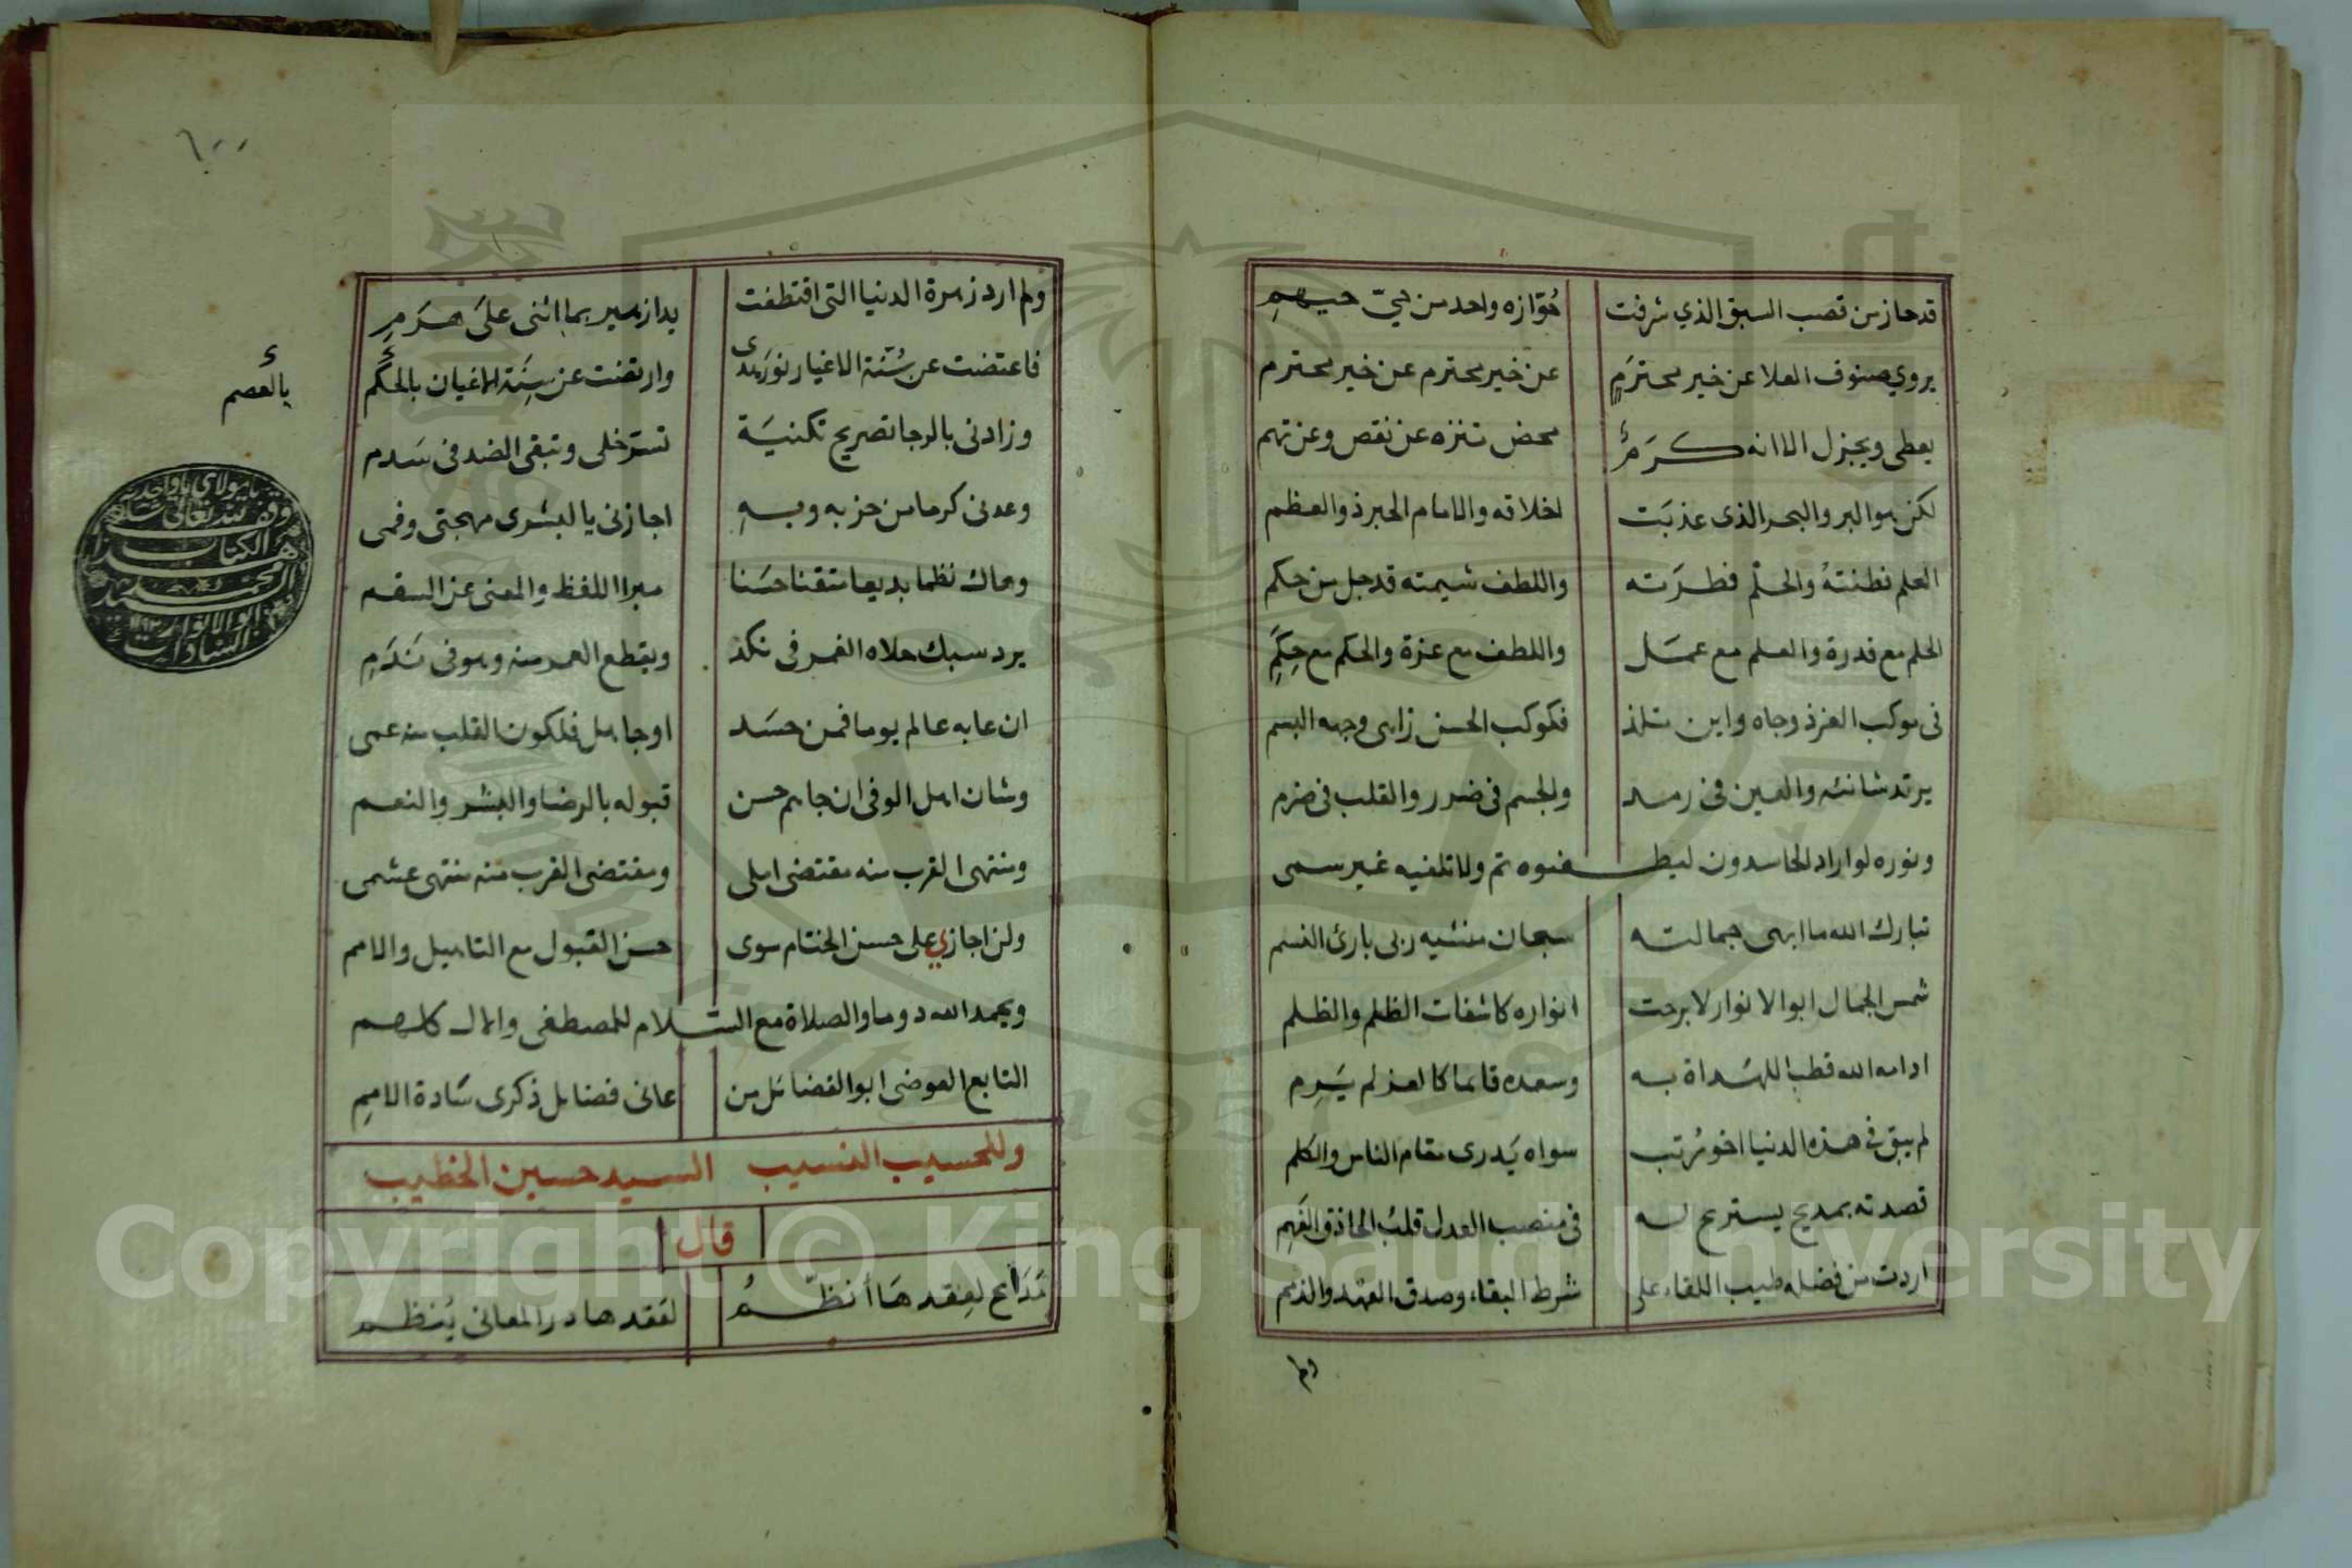 قد حاز من قصب السبق الذي شرفت حوّازه واحد من حيّ حيهم
يروي صنوف العلا عن خير محترم عن خير محترم عن خير محترم
يعطي ويجزل الا انه كرم محض تنزه عن نقص وعن تهم
لكن هو البر والبحر الذى عذبت اخلاقه والامام الحبر ذو العظم
العلم فطنته والحلم فطرته واللطف شيمته قد جل من حكم
الحلم مع قدرة والعلم مع عمل واللطف مع عزة والحكم مع حكم
فى موكب العز ذو جاه واين تلذ فكوكب الحسن زاهى وجهه البسم
يرتد شانئه والعين فى رمد والجسم فى ضرر والقلب فى ضرم
ونوره لو اراد الحاسدون ليطفئوه تم ولا تلفيه غير سمى
تبارك الله ما ابهى جمالته سبحان منشيه ربى بارئ النسم
شمس الجمال ابو الانوار لا برحت انواره كاشفات الظلم والظلم
ادامه الله قطب اللهداة به وسعده قائما كالعز لم يرم
لم يبق في هذه الدنيا اخو رتب سواه يدرى مقام الناس والكلم
قصدته بمديح يستريح له فى منصب العدل قلب الحاذق الفهم
اردت من فضله طيب اللقاء على شرط البقاء وصدق العهد والذمم
ولم
٦٠٠
ولم ارد زهرة الدنيا التى اقتطفت يدا زهير بما اثنى على هرم
فاعتضت عن سنة الاغيار نور هدى وارتضت عن سنة الاغيان بالحكم
بالعصم
وزادنى بالرجا تصريح تكنية تستر خلى وتبقى الضد فى سدم
وعدنى كرما من حزبه وبه اجازنى يا لبشرى مهجتى وفمى
وهاك نظما بديعا متقنا حسنا مبرا اللفظ والمعنى عن السقم
يرد سبك حلاه الغمر فى نكد ويقطع العمر منه وهو فى ندم
ان عابه عالم يوما فمن حسد او جاهل فلكون القلب منه عمى
وشان اهل الوفى ان جاهم حسن قبوله بالرضا والبشر والنعم
ومنتهى القرب منه مقتضى املى ومقتضى القرب منه منتهى عشمى
ولن اجازي على حسن الختام سوى حسن القبول مع التاهيل والامم
وبحمد الله دوما والصلاة مع السلام للمصطفى والال كلهم
التابع العوضى ابو الفضائل من عانى فضائل ذكرى سادة الامم
وللحسيب النسيب السيد حسين الخطيب
قال
مدائح لعقدها أنظم لعقدها در المعانى ينظم
يا مولاي يا واحد
وقف لله تعالى
هذا الكتاب
السيد محمد
ابو الانوار
السادات
Copyright © King Saud University
1957